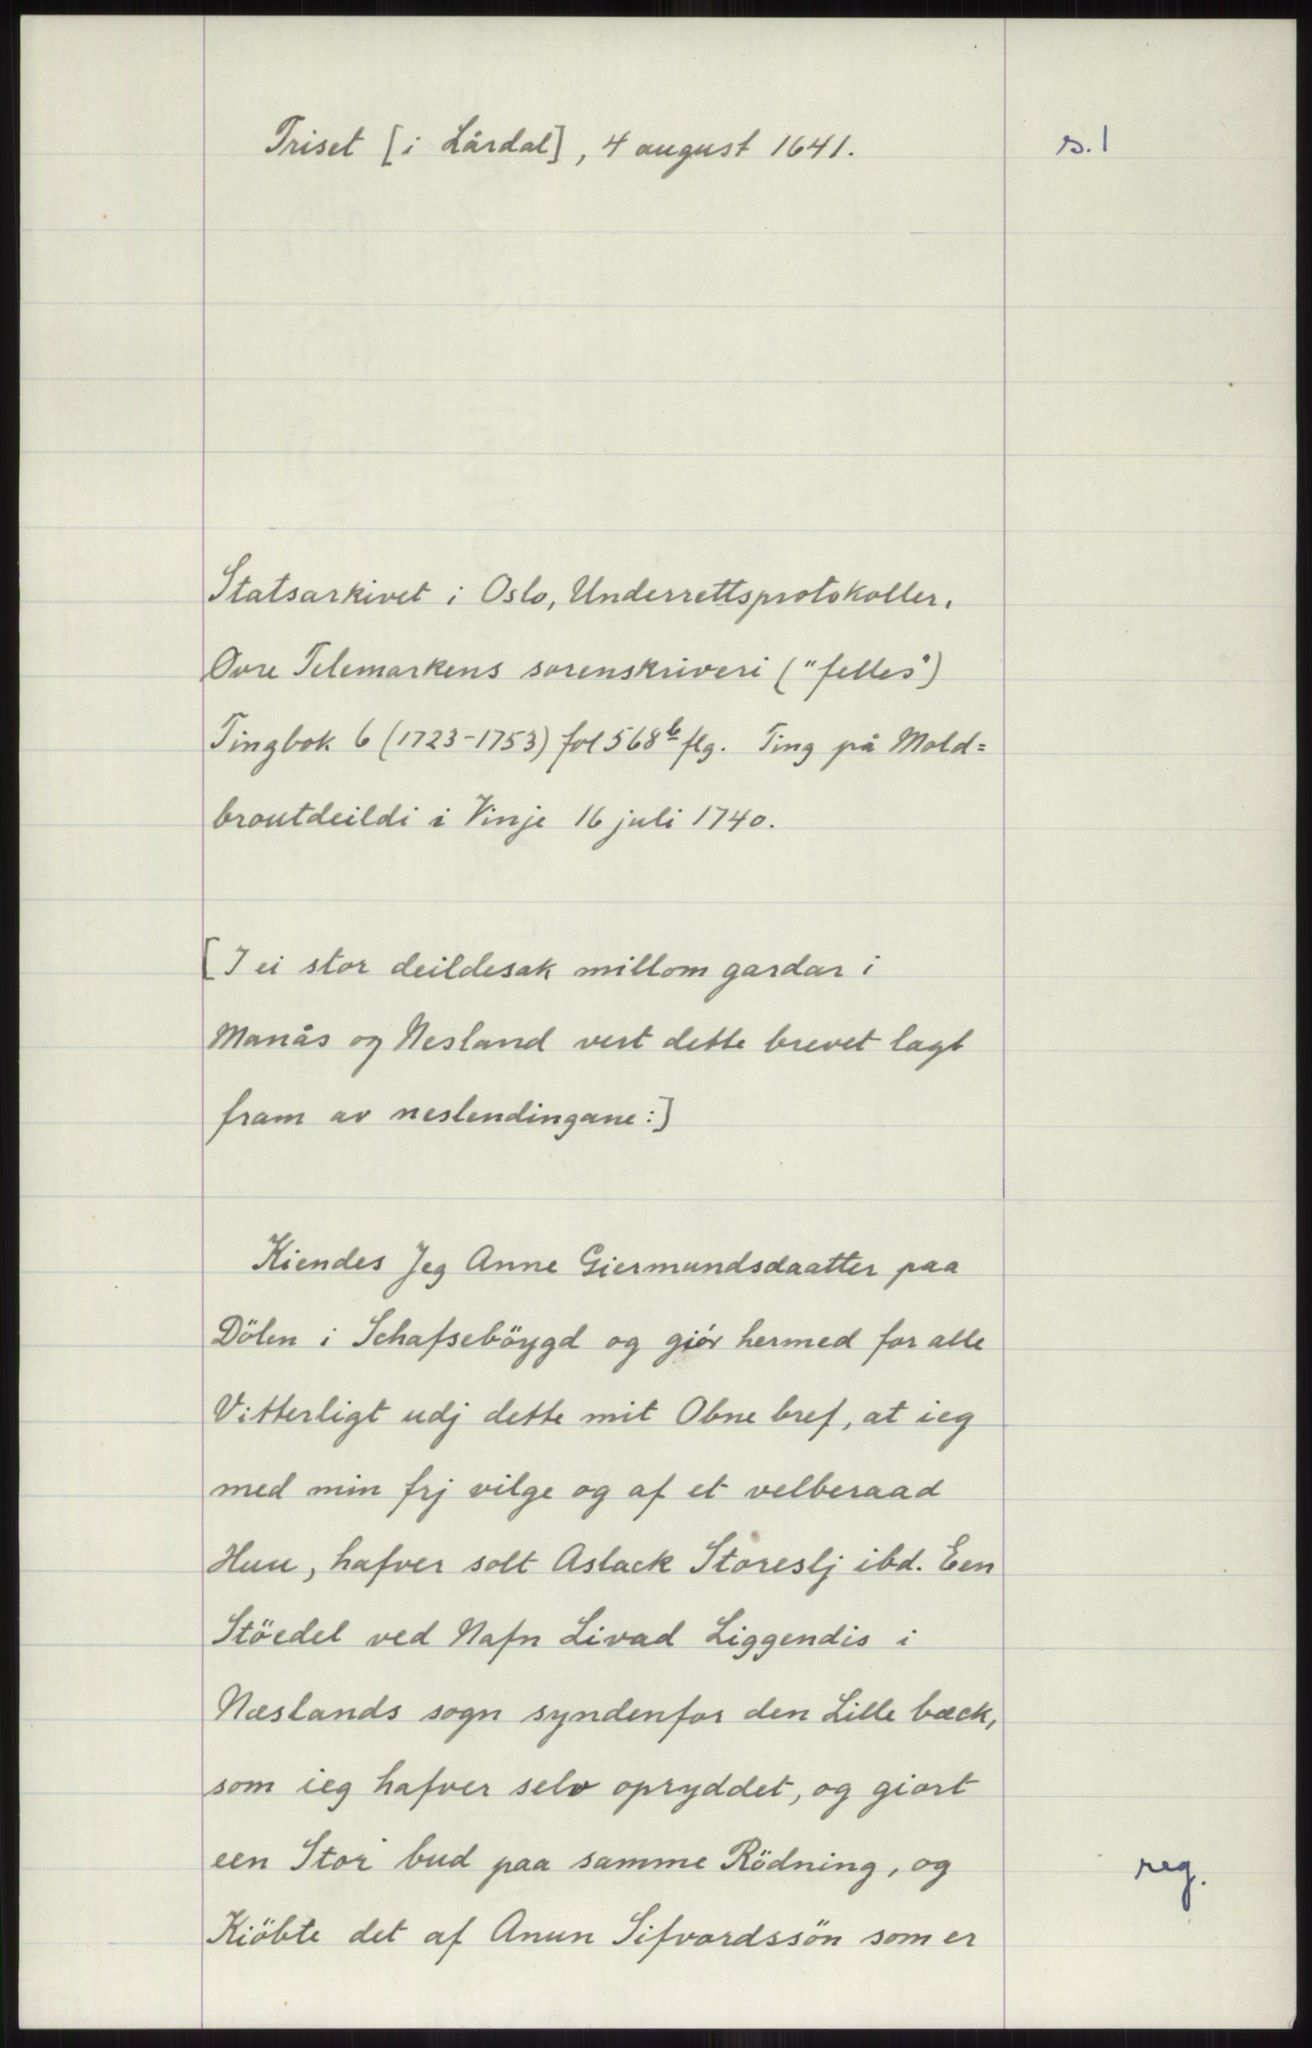 Triset [i Lårdal], 4 august 1641.
s.1
Statsarkivet i Oslo, Underrettsprotokoller,
Øvre Telemarkens sorenskriveri ("felles")
Tingbok 6 (1723-1753) fol 568b flg. Ting på Mold=
broutdeildi i Vinje 16 juli 1740.
[I ei stor deildesak millom gardar i
Manås og Nesland vert dette brevet lagt
fram av neslendingane:]
Kiendes Jeg Anne Giermundsdaatter paa
Dölen i Schafseböygd og giör hermed for alle
Vitterligt udj dette mit Obne bref, at ieg
med min frj vilge og af et velberaad
Huu, hafver solt Aslack Storeslj ibd. Een
Stöedel ved Nafn Livad Liggendis i
Næslands sogn syndenfor den Lille bæck,
som ieg hafver selv opryddet, og giort
een Stor bud paa samme Rödning, og
reg.
Kiöbte det af Anun Sifvordssön som er